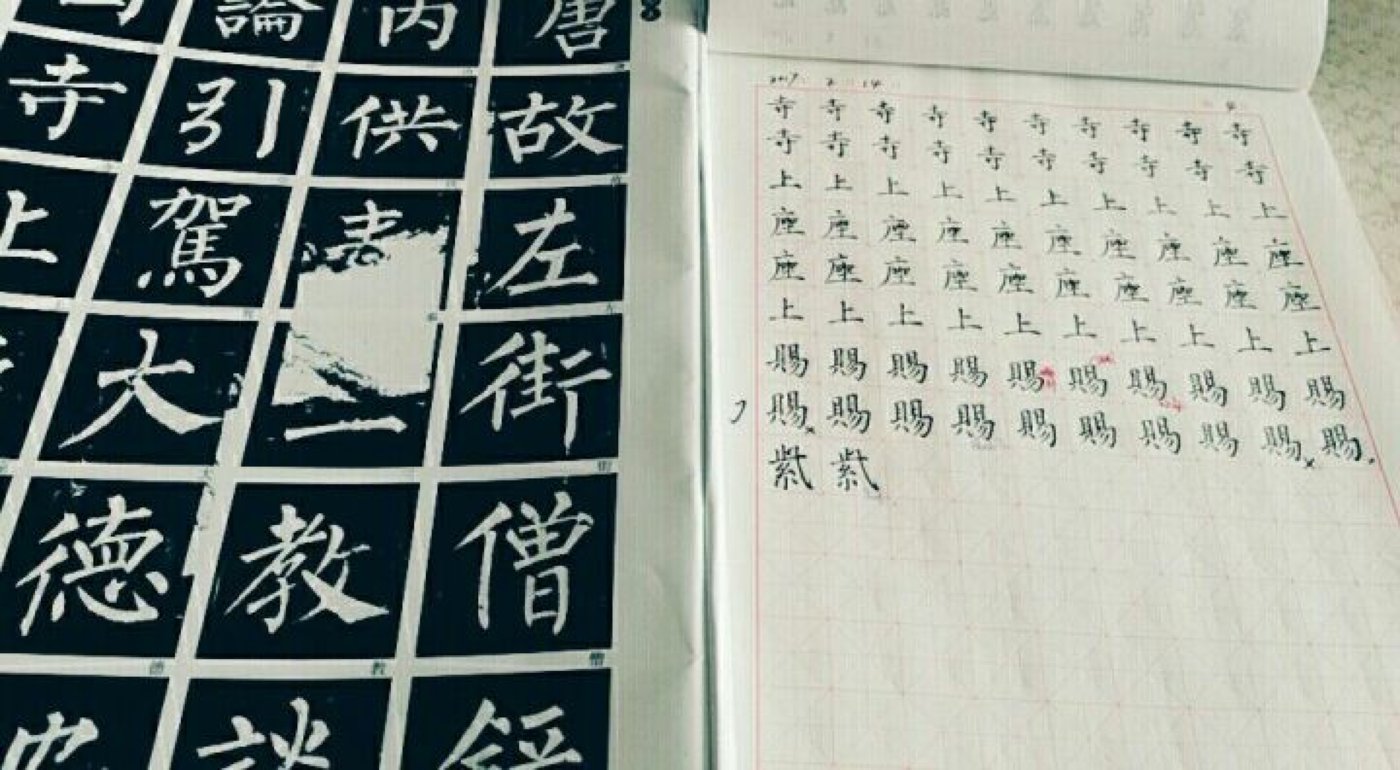 唐故左街僧
內供教談
論引駕大德
寺上
2017 2 14
4
寺寺寺寺寺寺寺寺寺寺
寺寺寺寺寺寺寺寺寺寺
上上上上上上上上上上
座座座座座座座座座座
座座座座座座座座座座
上上上上上上上上上上
賜賜賜賜賜賜賜賜賜賜
賜賜賜賜賜賜賜賜賜賜
紫紫